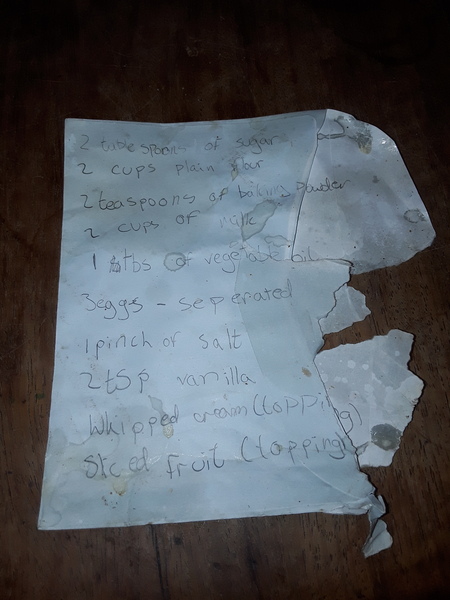 2 tablespoons of sugar
2 cups plain flour
2 teaspoons of baking powder
2 cups of milk
1 tbs of vegetable oil
3 eggs - seperated
1 pinch of salt
2 tsp vanilla
Whipped cream (topping)
Sliced fruit (topping)